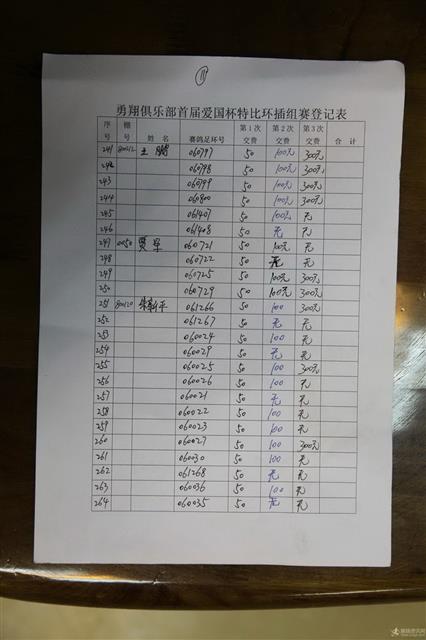 11
勇翔俱乐部首届爱国杯特比环插组赛登记表
序号 棚号 姓名 赛鸽足环号 第1次交费 第2次交费 第3次交费 合计
241 80012 王鹏 060797 50 100元 300元
242 060798 50 100元 300元
243 060799 50 100元 300元
244 060800 50 100元 300元
245 061407 50 100元 无
246 061408 50 无 无
247 0050 贾军 060721 50 100元 无
248 060722 50 无 无
249 060725 50 100元 300元
250 060729 50 100元 300元
251 80120 朱新平 061266 50 100 300元
252 061267 50 无 无
253 060024 50 100 无
254 060029 50 无 无
255 060025 50 100 300元
256 060026 50 100 无
257 060021 50 无 无
258 060022 50 100 无
259 060023 50 100 无
260 060027 50 100 300元
261 060030 50 100 无
262 061268 50 无 无
263 060036 50 100 无
264 060035 50 无 无